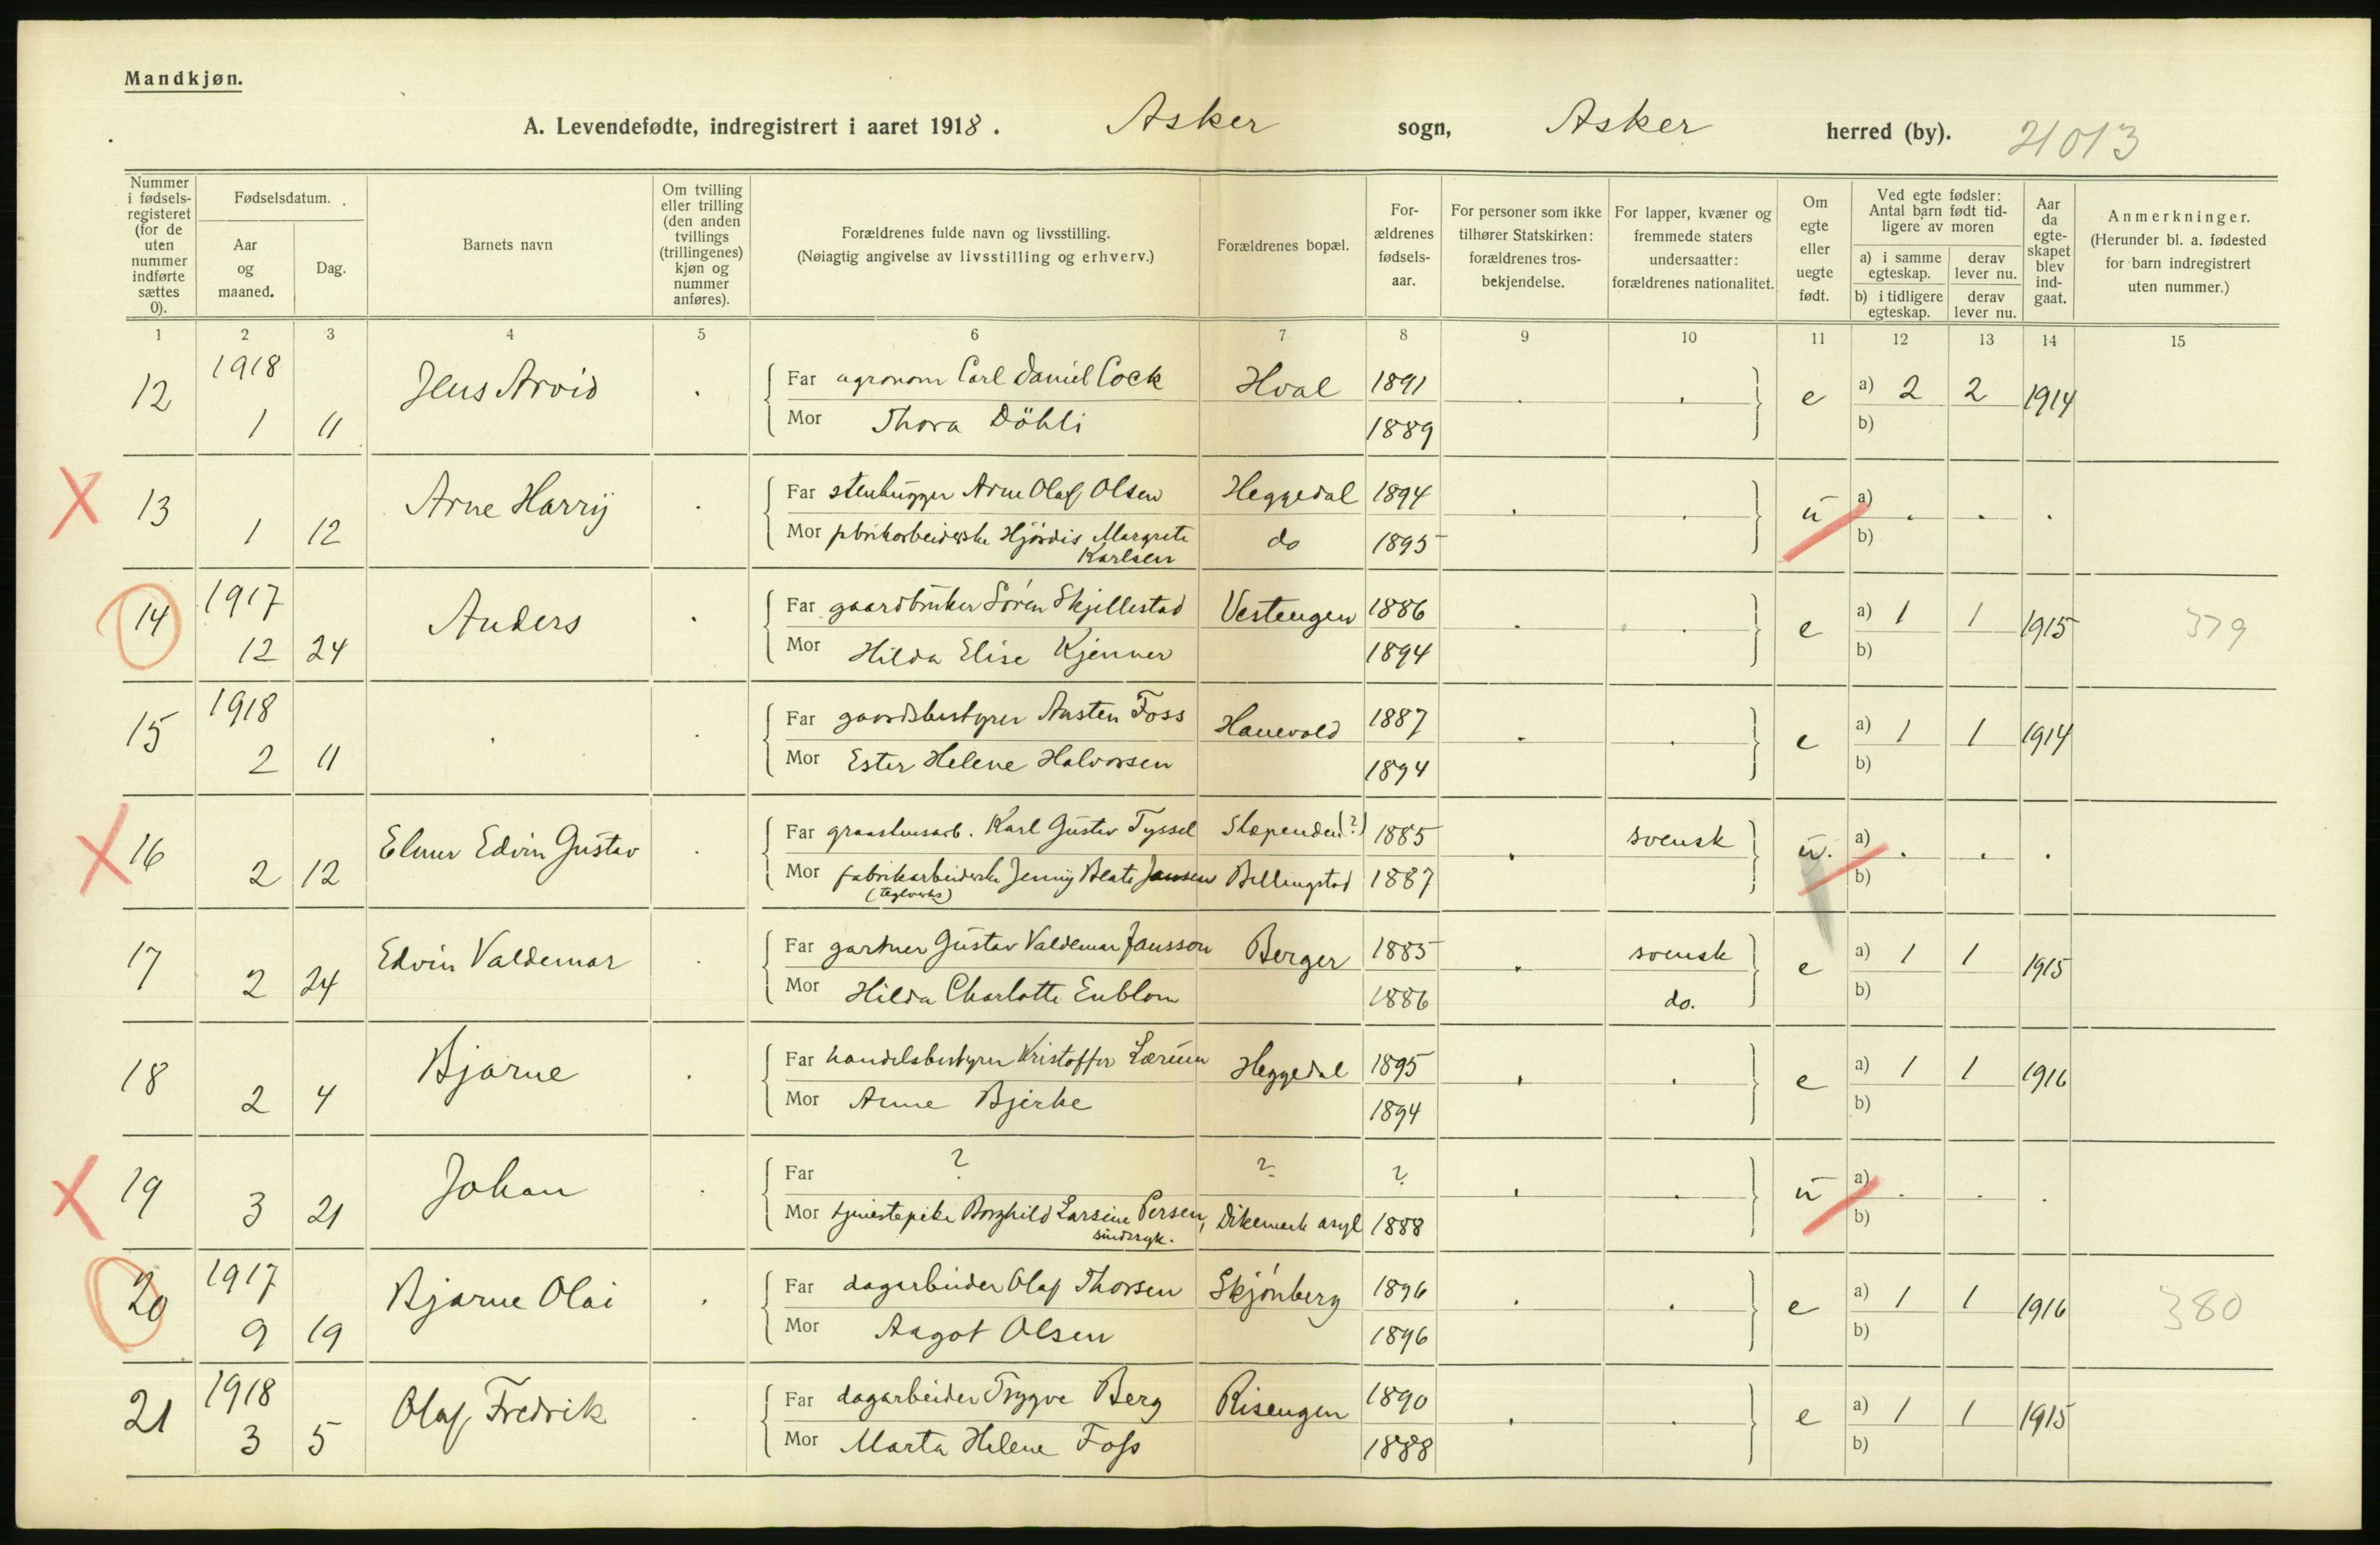 Mandkjøn.
A. Levendefødte, indregistrert i aaret 1918. Asker sogn, Asker herred (by). 21013
Nummer i fødsels-registeret (for de uten nummer indførte sættes 0).
Fødselsdatum.
Aar og maaned.
Dag.
Barnets navn
Om tvilling eller trilling (den anden tvillings (trillingenes) kjøn og nummer anføres).
Forældrenes fulde navn og livsstilling.
(Nøiagtig angivelse av livsstilling og erhverv.)
Forældrenes bopæl.
For-ældrenes fødsels-aar.
For personer som ikke tilhører Statskirken: forældrenes tros-bekjendelse.
For lapper, kvæner og fremmede staters undersaatter: forældrenes nationalitet.
Om egte eller uegte født.
Ved egte fødsler: Antal barn født tid-ligere av moren
a) i samme egteskap.
derav lever nu.
b) i tidligere egteskap.
derav lever nu.
Aar da egte-skapet blev ind-gaat.
Anmerkninger.
(Herunder bl. a. fødested for barn indregistrert uten nummer.)
1 2 3 4 5 6 7 8 9 10 11 12 13 14 15
12 1918 1 11 Jens Arvid . Far agronom Carl Daniel Cock Hval 1891 . . e a) 2 2 1914
Mor Thora Döhli 1889 b)
13 1 12 Arne Harry . Far stenhugger Arne Olaf Olsen Heggedal 1894 . . u a) . . .
Mor fabrikarbeiderske Hjørdis Margrete Karlsen do 1895 b)
14 1917 12 24 Anders . Far gaardbruker Søren Skjellestad Vestengen 1886 . . e a) 1 1 1915 379
Mor Hilda Elise Kjenner 1894 b)
15 1918 2 11 . . Far gaardsbestyrer Austen Foss Hanevold 1887 . . e a) 1 1 1914
Mor Ester Helene Halvorsen 1894 b)
16 2 12 Elmer Edvin Gustav . Far Karl Gustav Tyssel Slependen(?) 1885 . svensk u. a) . . .
Mor fabrikarbeiderske Jenny Beate Jansen Billingstad 1887 b)
(teglverks)
17 2 24 Edvin Valdemar . Far gartner Gustav Valdemar Jansson Berger 1885 . svensk e a) 1 1 1915
Mor Hilda Charlotte Enblom 1886 do. b)
18 2 4 Bjarne . Far handelsbestyrer Kristoffer Lærum Heggedal 1895 . . e a) 1 1 1916
Mor Anne Bjerke 1894 b)
19 3 21 Johan . Far ? ? ? . . u a) . . .
Mor tjenestepike Borghild Larsine Persen, Dikemark asyl 1888 b)
sindssyk.
20 1917 9 19 Bjarne Olai . Far dagarbeider Olaf Thorsen Skjønberg 1896 . . e a) 1 1 1916 380
Mor Aagot Olsen 1896 b)
21 1918 3 5 Olaf Fredrik . Far dagarbeider Trygve Berg Risengen 1890 . . e a) 1 1 1915
Mor Marta Helene Foss 1888 b)